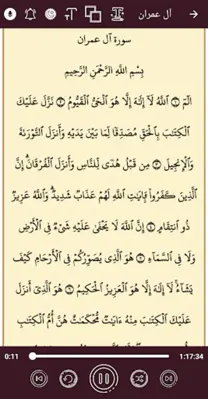 آل عمران
سورة آل عمران
بِسْمِ اللَّهِ الرَّحْمَٰنِ الرَّحِيمِ
الٓمٓ ۝١ ٱللَّهُ لَآ إِلَٰهَ إِلَّا هُوَ ٱلْحَىُّ ٱلْقَيُّومُ ۝٢ نَزَّلَ عَلَيْكَ
ٱلْكِتَٰبَ بِٱلْحَقِّ مُصَدِّقًا لِّمَا بَيْنَ يَدَيْهِ وَأَنزَلَ ٱلتَّوْرَىٰةَ
وَٱلْإِنجِيلَ ۝٣ مِن قَبْلُ هُدًى لِّلنَّاسِ وَأَنزَلَ ٱلْفُرْقَانَ إِنَّ
ٱلَّذِينَ كَفَرُوا۟ بِـَٔايَٰتِ ٱللَّهِ لَهُمْ عَذَابٌ شَدِيدٌ وَٱللَّهُ عَزِيزٌ
ذُو ٱنتِقَامٍ ۝٤ إِنَّ ٱللَّهَ لَا يَخْفَىٰ عَلَيْهِ شَىْءٌ فِى ٱلْأَرْضِ
وَلَا فِى ٱلسَّمَآءِ ۝٥ هُوَ ٱلَّذِى يُصَوِّرُكُمْ فِى ٱلْأَرْحَامِ كَيْفَ
يَشَآءُ لَآ إِلَٰهَ إِلَّا هُوَ ٱلْعَزِيزُ ٱلْحَكِيمُ ۝٦ هُوَ ٱلَّذِىٓ أَنزَلَ
عَلَيْكَ ٱلْكِتَٰبَ مِنْهُ ءَايَٰتٌ مُّحْكَمَٰتٌ هُنَّ أُمُّ ٱلْكِتَٰبِ
0:11 1:17:34